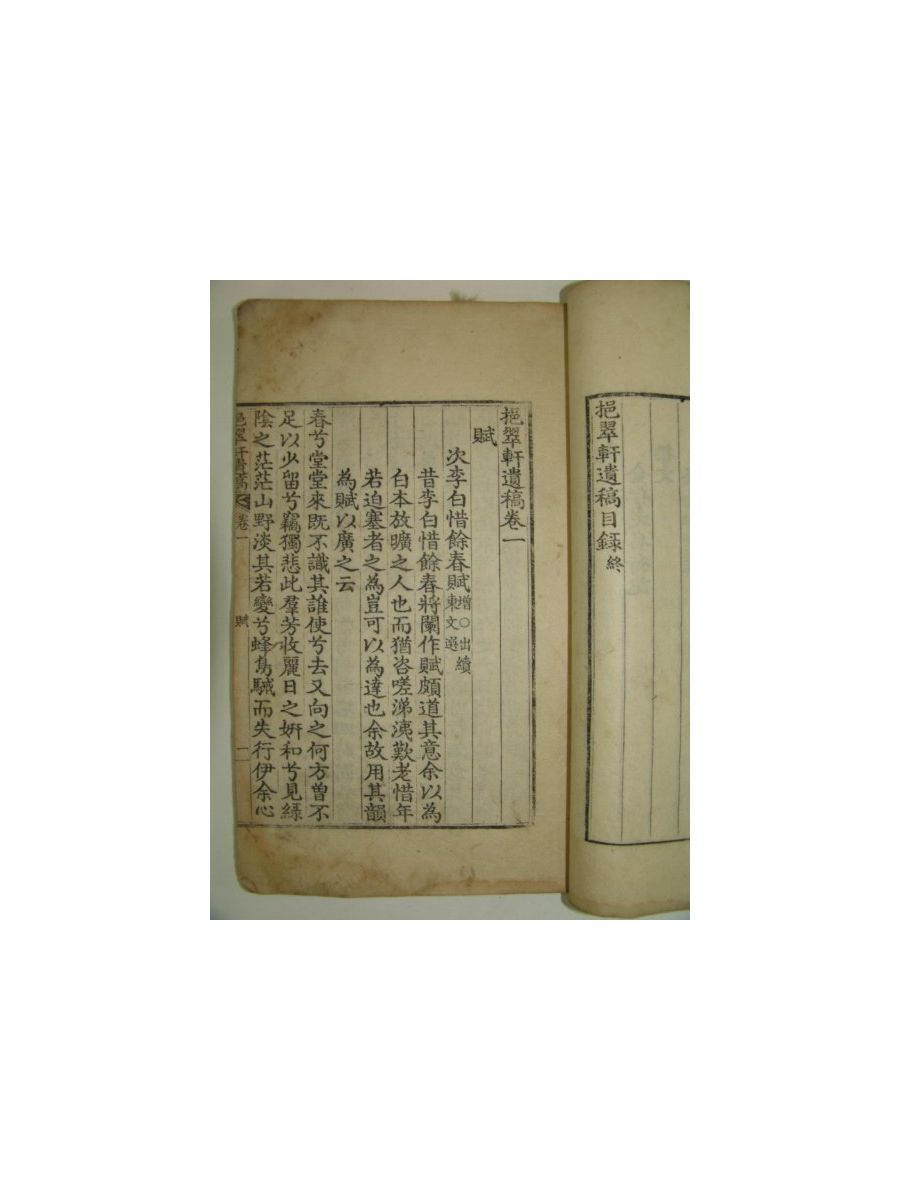 挹翠軒遺稿目錄終
挹翠軒遺稿卷一
賦
次李白惜餘春賦增○出續東文選
昔李白惜餘春將闌作賦頗道其意余以為
白本放曠之人也而猶咨嗟涕洟歎老惜年
若迫塞者之為豈可以為達也余故用其韻
為賦以廣之云
春兮堂堂來既不識其誰使兮去又向之何方曾不
足以少留兮竊獨悲此羣芳收麗日之姸和兮見綠
陰之茫茫山野淡其若變兮蜂鳥駴而失行伊余心
挹翠軒遺稿 卷一 賦 一